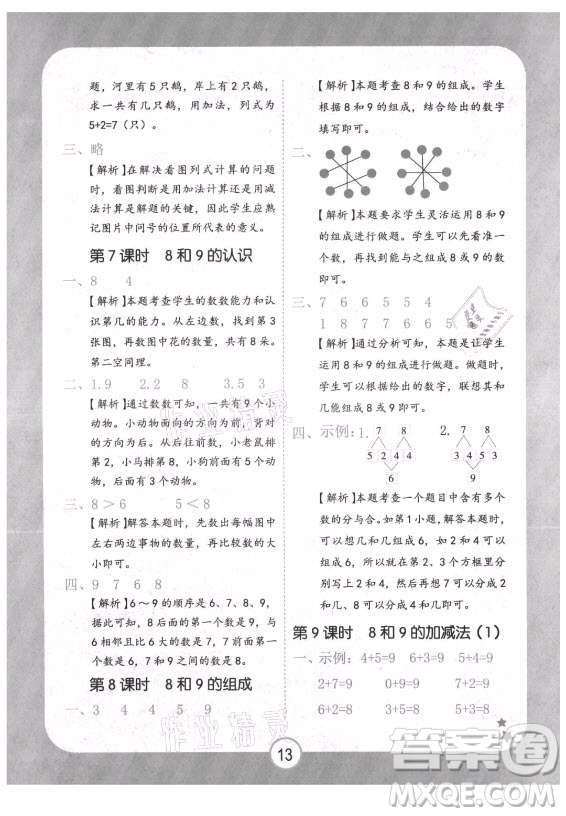 题，河里有 5 只鹅，岸上有 2 只鹅，
求一共有几只鹅，用加法，列式为
5+2=7（只）。
三、略
【解析】在解决看图列式计算的问题
时，看图判断是用加法计算还是用减
法计算是解题的关键，因此学生应熟
记图片中问号的位置所代表的意义。
第 7 课时 8 和 9 的认识
一、8 4
【解析】本题考查学生的数数能力和认
识第几的能力。从左边数，找到第 3
张图，再数图中花的数量，共有 8 朵。
第二空同理。
二、1.9 2.2 8 3.5 3
【解析】通过数数可知，一共有 9 个小
动物。小动物面朝的方向为前，背对
的方向为后。所以从前往后，小老鼠排
第 2，小马排第 8。小狗前面有 5 个动
物，后面有 3 个动物。
三、8＞6 5＜8
【解析】解答本题时，先数出每幅图中
左右两边事物的数量，再比较数量的大
小即可。
四、9 7 6 8
【解析】6～9 的顺序是 6、7、8、9，
与 6 相邻且比 6 大的数是 7，比 8 大的
数是 9，7 和 9 之间的数是 8。
第 8 课时 8 和 9 的组成
一、3 4 4 5 9
【解析】本题考查 8 和 9 的组成。学生
根据 8 和 9 的组成，结合给出的数字
填写即可。
二、
【解析】本题要求学生灵活运用 8 和 9
的组成进行做题。学生可以先看准一
个数，再从其他的数中找到对应的数
即可。
三、7 6 6 5 4
1 8 7 7 6 6 5
【解析】通过分析可知，本题是让学生
运用 8 和 9 的组成进行做题。做题时，
学生可根据已给出的数字，联系 8 和
9 的组成进行填空即可。
四、示例：1. 7 8 2. 7 8
5 2 4 4 3 4 5 3
6 9
【解析】本题考查一个题目中含有多个
数的分与合。如第 1 小题，学生要先
想出 2 和几组成 7，在 2 左边的方框里
写几；再看 2 和几组成 6，在 2 右边的
方框里写几；最后在后 2 个方框里分
别写上 4 和 4 即可。第 2 小题同理。
第 9 课时 8 和 9 的加减法（1）
一、示例：4+5=9 6+3=9 5+4=9
2+7=9 3+6=9 7+2=9
6+2=8 5+3=8
13
作业精灵
作业精灵
答案圈
MXQE.COM